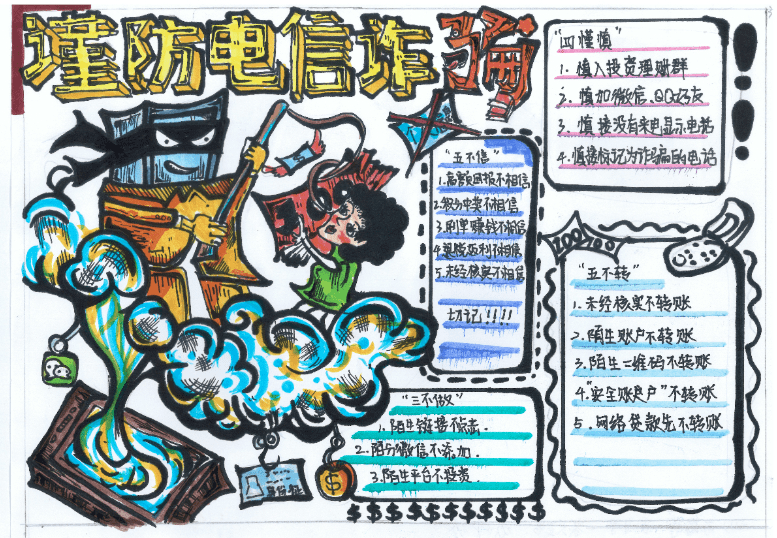 谨防电信诈骗
"四谨慎"
1. 慎入投资理财群
2. 慎加微信、QQ好友
3. 慎接没有来电显示电话
4. 慎接标记为诈骗的电话
"五不信"
1. 高额回报不相信
2. 积分中奖不相信
3. 刷单赚钱不相信
5. 未经核实不相信
切记!!!!
"五不转"
1. 未经核实不转账
2. 陌生账户不转账
3. 陌生二维码不转账
4. "安全账户"不转账
5. 网络贷款先不转账
"三不做"
1. 陌生链接不点击.
2. 陌生微信不添加.
3. 陌生平台不投资.
100
身份证
$
$ $ $ $ $ $ $ $ $ $ $